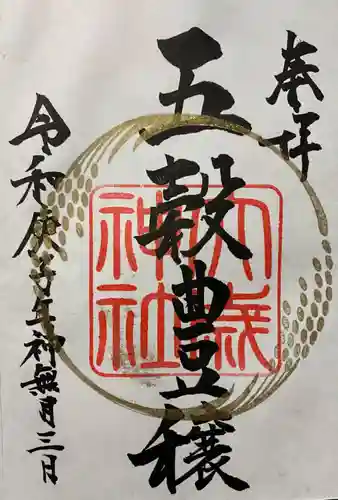 奉拝
五穀豊穣
大歳
神社
令和伍年神無月三日